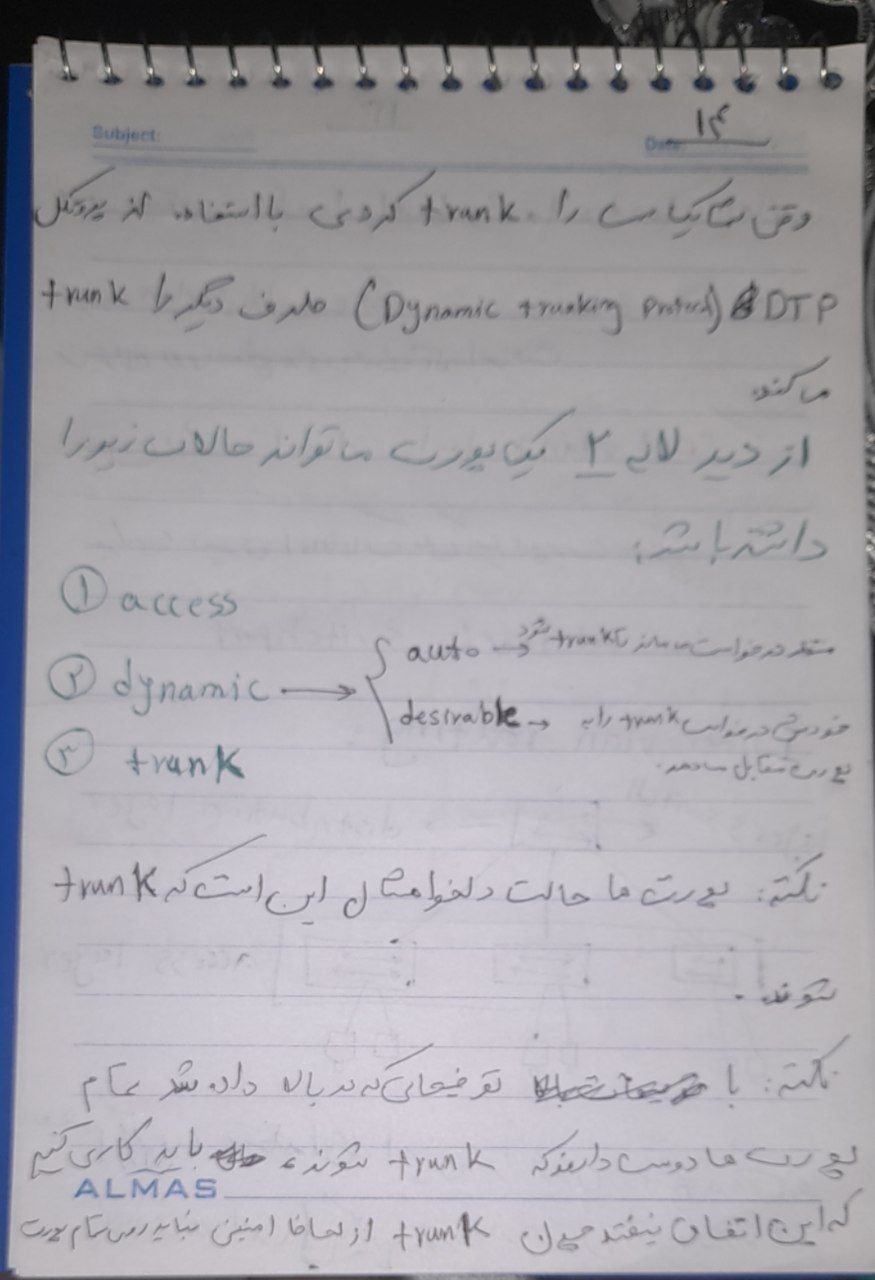 Subject:
Date: ۱۴
وقتی یک سمت را trunk کردی با استفاده از پروتکل
DTP (Dynamic trunking Protocol) طرف دیگر را trunk
می کند.
از دید لایه ۲ یک پورت می تواند حالات زیر را
داشته باشد:
① access
② dynamic → { auto → منتظر درخواست می ماند تا trunk شود
desirable → خودش درخواست trunk را به
پورت مقابل می دهد.
③ trunk
نکته: پورت ها حالت دلخواهشان این است که trunk
شوند.
نکته: با توضیحاتی که در بالا داده شد تمام
پورت ها دوست دارند که trunk شوند، باید کاری کنیم
ALMAS
که این اتفاق نیفتد چون trunk از لحاظ امنیتی نباید روی تمام پورت